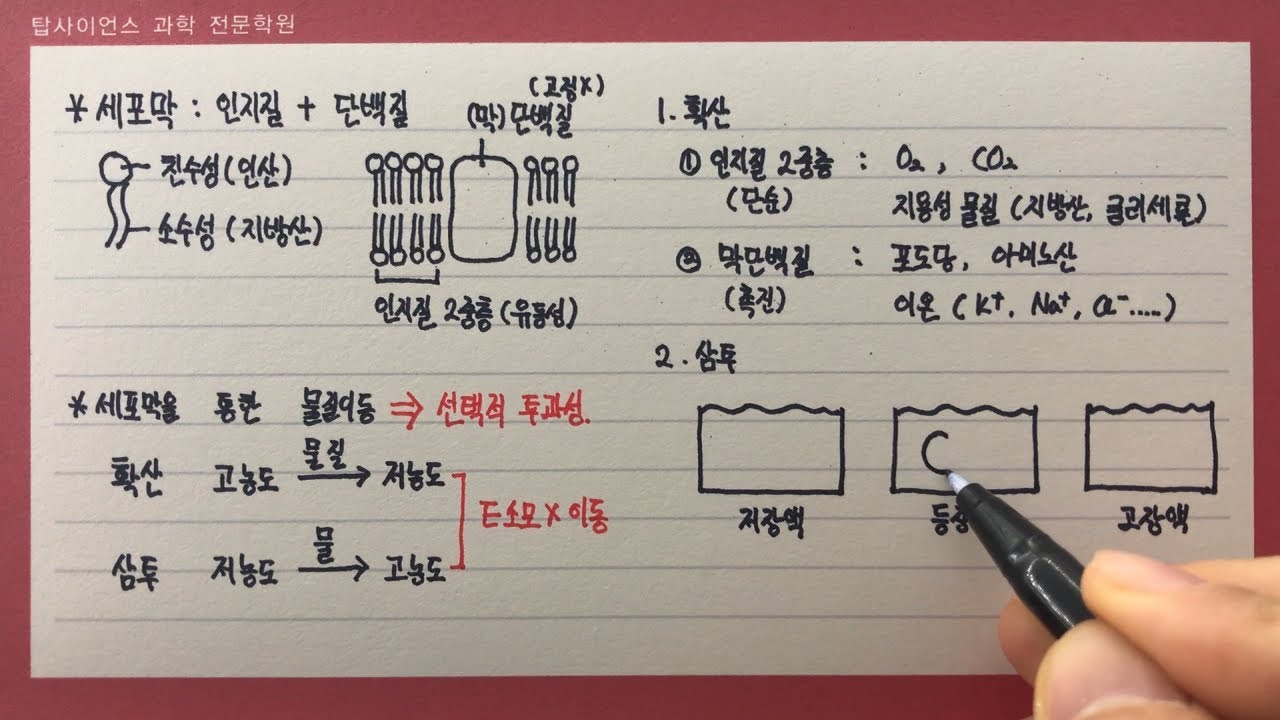 탑사이언스 과학 전문학원
* 세포막 : 인지질 + 단백질
(고정X)
(막)단백질
친수성(인산)
소수성(지방산)
인지질 2중층(유동성)
* 세포막을 통한 물질이동 ⇒ 선택적 투과성.
확산 고농도 물질→ 저농도
삼투 저농도 물→ 고농도
E소모X이동
1. 확산
① 인지질 2중층 : O₂, CO₂
(단순) 지용성 물질(지방산, 글리세롤)
② 막단백질 : 포도당, 아미노산
(촉진) 이온(K⁺, Na⁺, Cl⁻.....)
2. 삼투
저장액 고장액